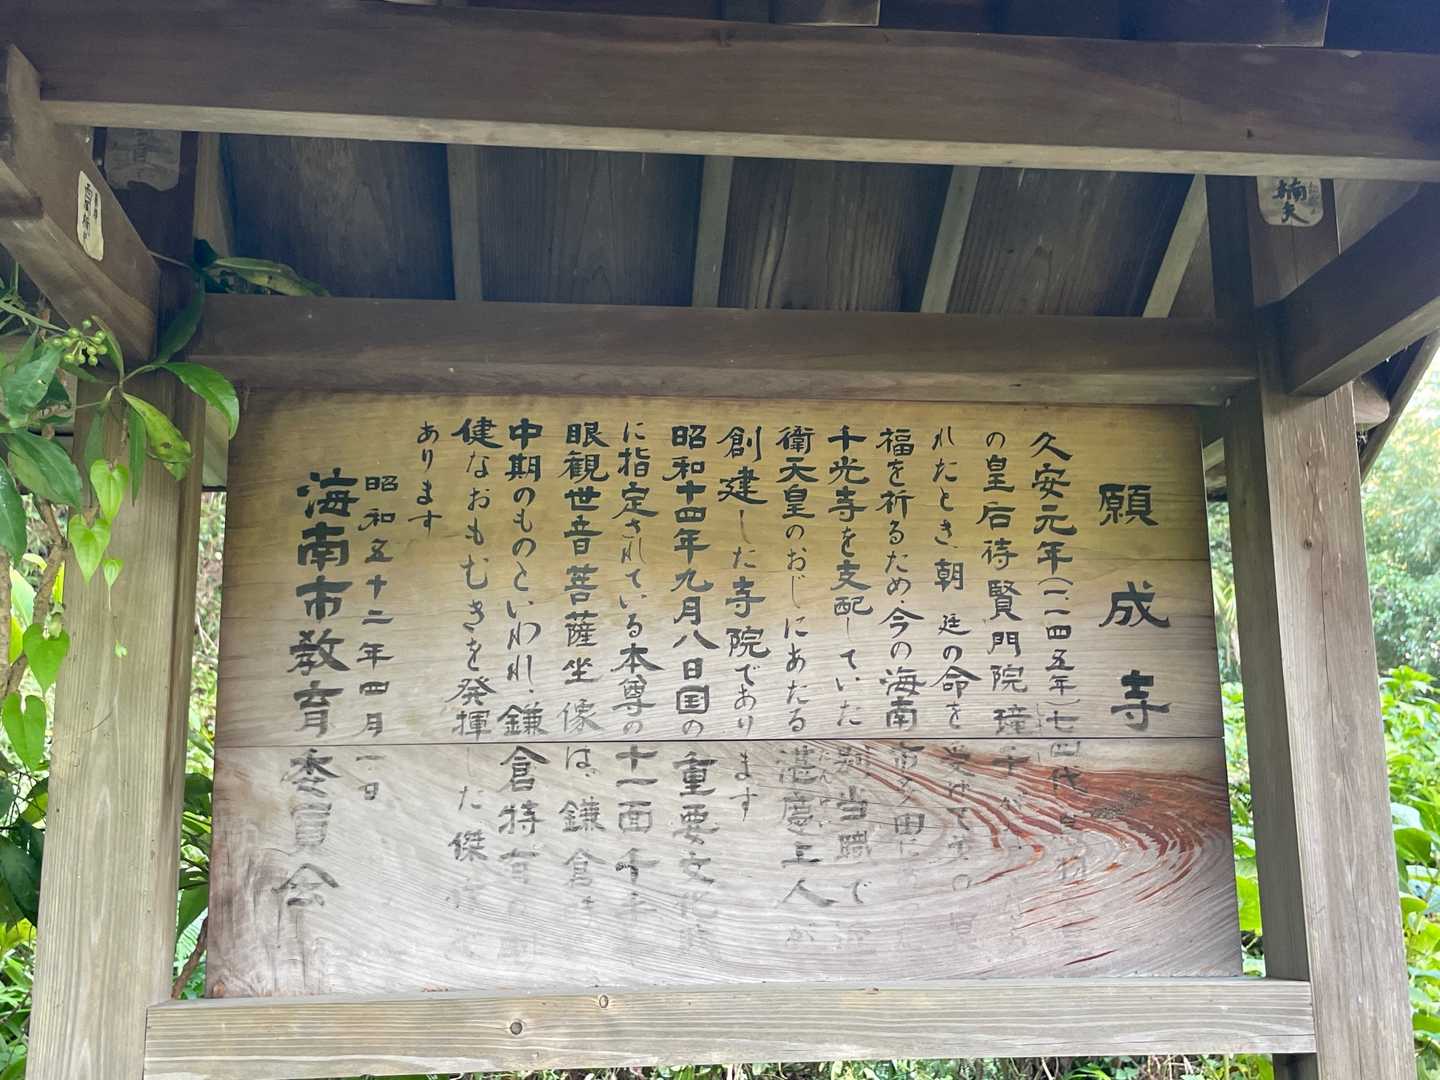 願成寺
久安元年(一一四五年)七四代
の皇后待賢門院璋子が
れたとき、朝廷の命を受けて
福を祈るため、今の海南市
千光寺を支配していた別当職で
衛天皇のおじにあたる湛慶上人が
創建した寺院であります
昭和十四年九月八日国の重要文化
に指定されている本尊の十一面千手
眼観世音菩薩坐像は、鎌倉
中期のものといわれ、鎌倉特有
健なおもむきを発揮した傑
あります
昭和五十二年四月一日
海南市教育委員会